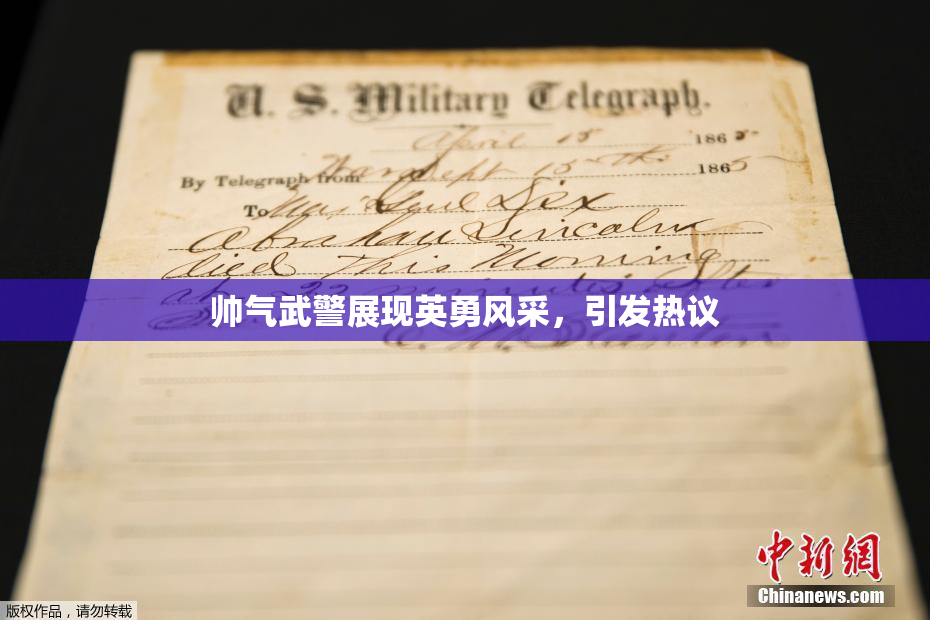 U. S. Military Telegraph.
April 15 1865
By Telegraph from War Dept 15th 1865
To Maj Genl Dix
Abraham Lincoln
died This Morning
at 22 minutes after
帅气武警展现英勇风采，引发热议
E. M. Stanton
中新網
Chinanews.com
版权作品，请勿转载